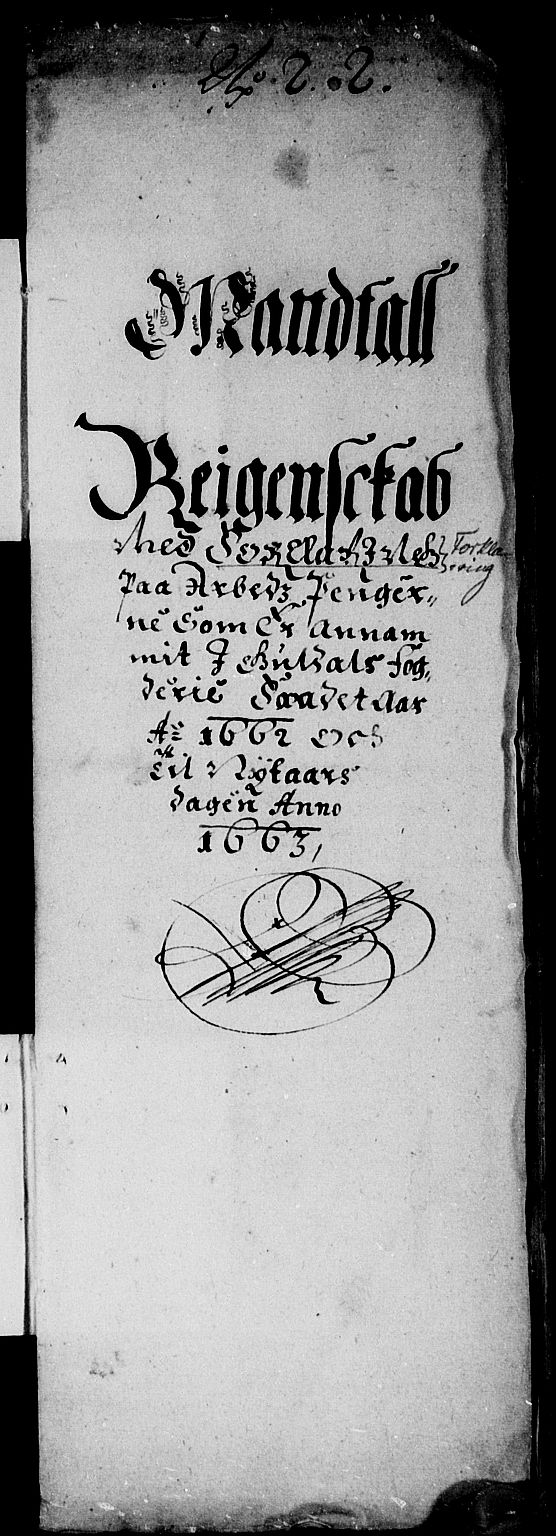 No. 2. 2.
Mandtall
Reigensckab
Med Forklaring
Forklaring
paa Arbedz Penger„
ne Som Er annam
mit I Guldals fog„
derie Paa det Aar
Ao 1662 Och
Til Nÿtaars
dagen Anno
1663,